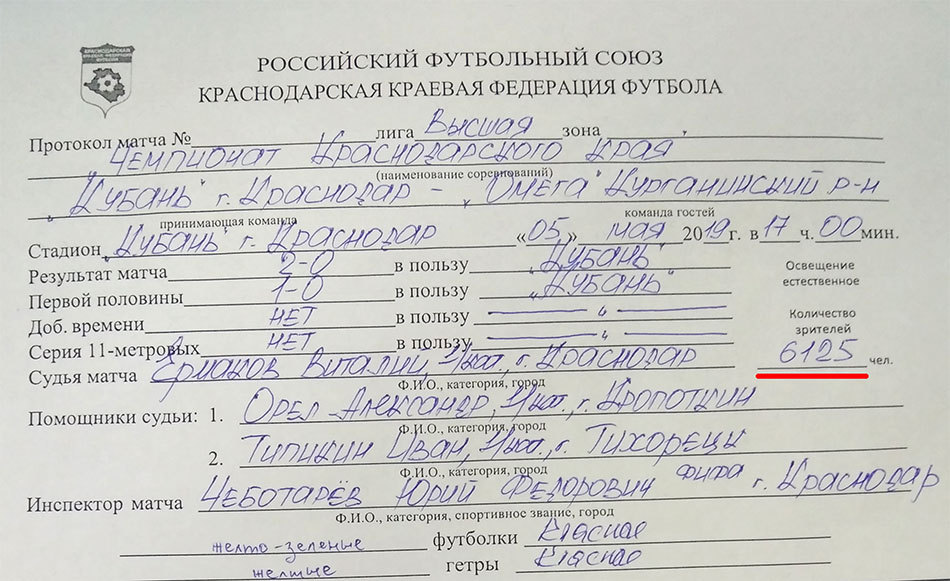 КРАСНОДАРСКАЯ
КРАЕВАЯ ФЕДЕРАЦИЯ
ФУТБОЛА
РОССИЙСКИЙ ФУТБОЛЬНЫЙ СОЮЗ
КРАСНОДАРСКАЯ КРАЕВАЯ ФЕДЕРАЦИЯ ФУТБОЛА
Протокол матча № лига Высшая зона
Чемпионат Краснодарского края
(наименование соревнований)
"Кубань" г. Краснодар - "Омега" Курганинский р-н
принимающая команда команда гостей
Стадион "Кубань" г. Краснодар «05» мая 2019 г. в 17 ч. 00 мин.
Результат матча 2-0 в пользу "Кубань"
Освещение
естественное
Первой половины 1-0 в пользу "Кубань"
Доб. времени нет в пользу — " —
Количество
зрителей
Серия 11-метровых нет в пользу — " —
6125 чел.
Судья матча Ермаков Виталий, 1/кат., г. Краснодар
Ф.И.О., категория, город
Помощники судьи: 1. Орел Александр, 1/кат., г. Кропоткин
Ф.И.О., категория, город
2. Типикин Иван, 1/кат., г. Тихорецк
Ф.И.О., категория, город
Инспектор матча Чеботарёв Юрий Федорович ФИФА г. Краснодар
Ф.И.О., категория, спортивное звание, город
желто-зеленые футболки красные
желтые гетры красные